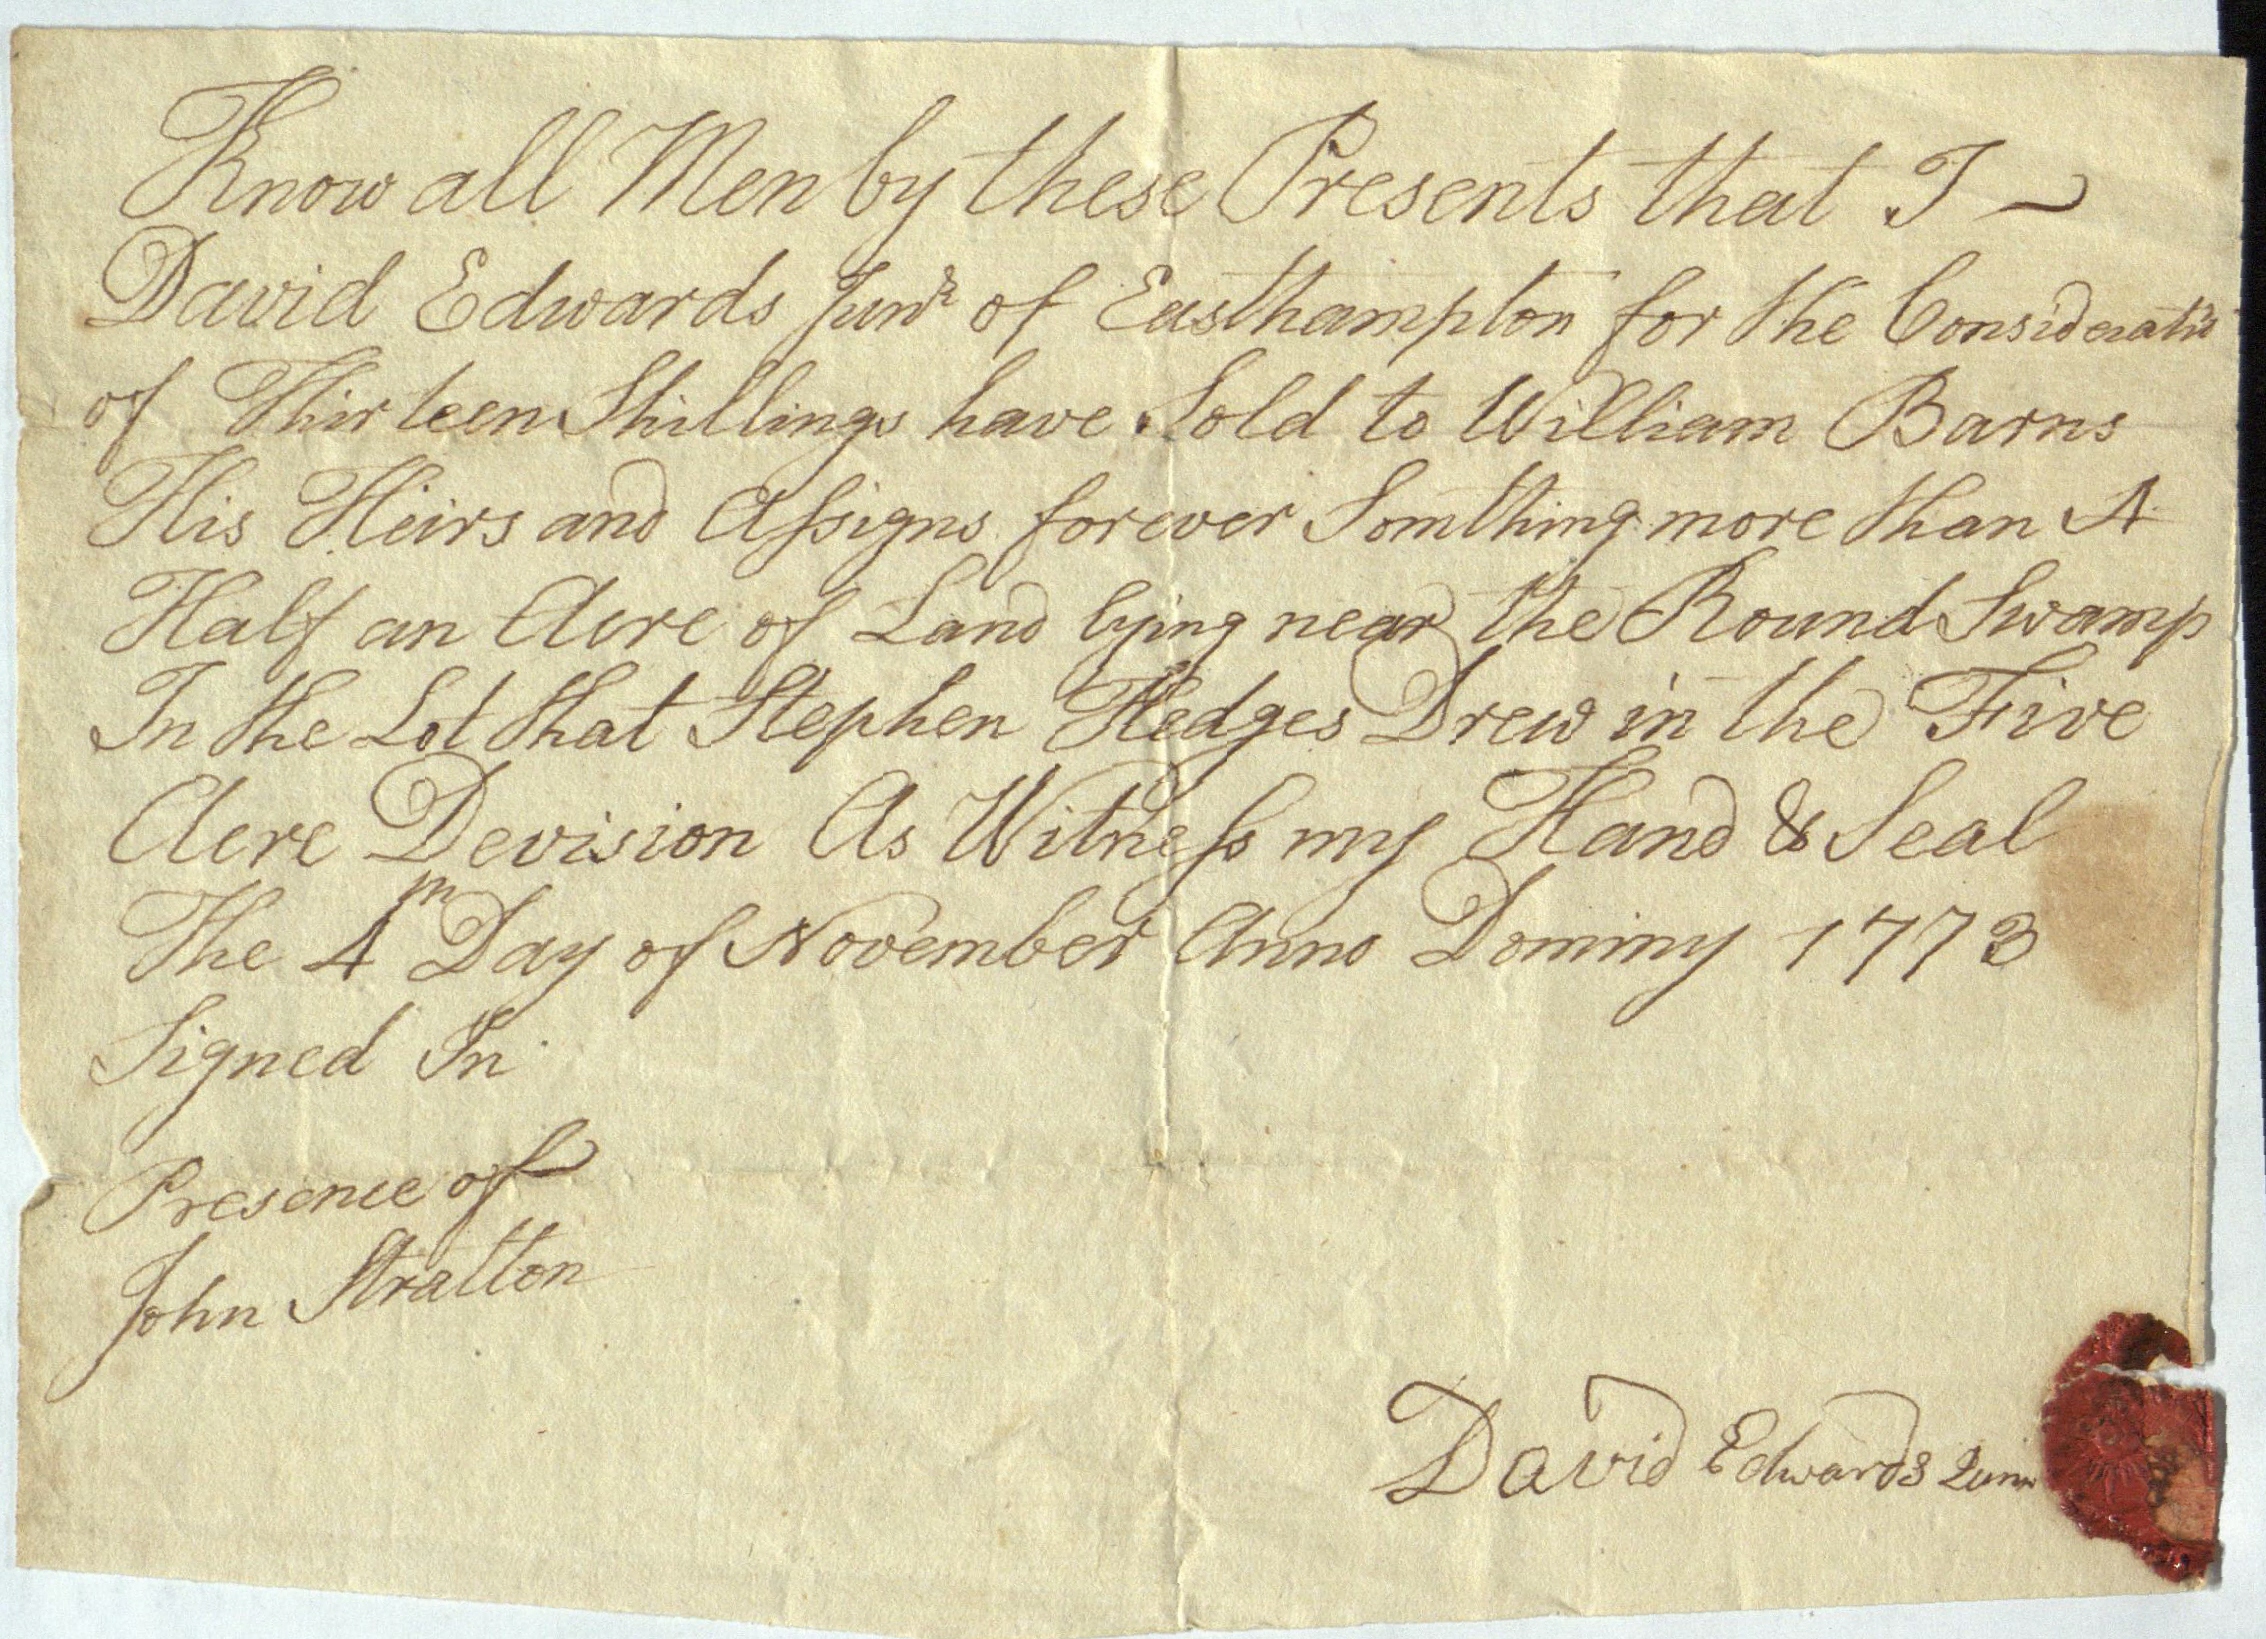 Know all Men by these Presents that I ~
David Edwards Junr of Easthampton for the Consideratio
of Thirteen Shillings have Sold to William Barns
His Heirs and Assigns forever Somthing more than A
Half an Acre of Land lying near the Round Swamp
In the Lot that Stephen Hedges Drew in the Five
Acre Devision As Witness my Hand & Seal
The 4th Day of November Anno Dominy 1773
Signed In
Presence of
John Stratton
David Edwards Junr